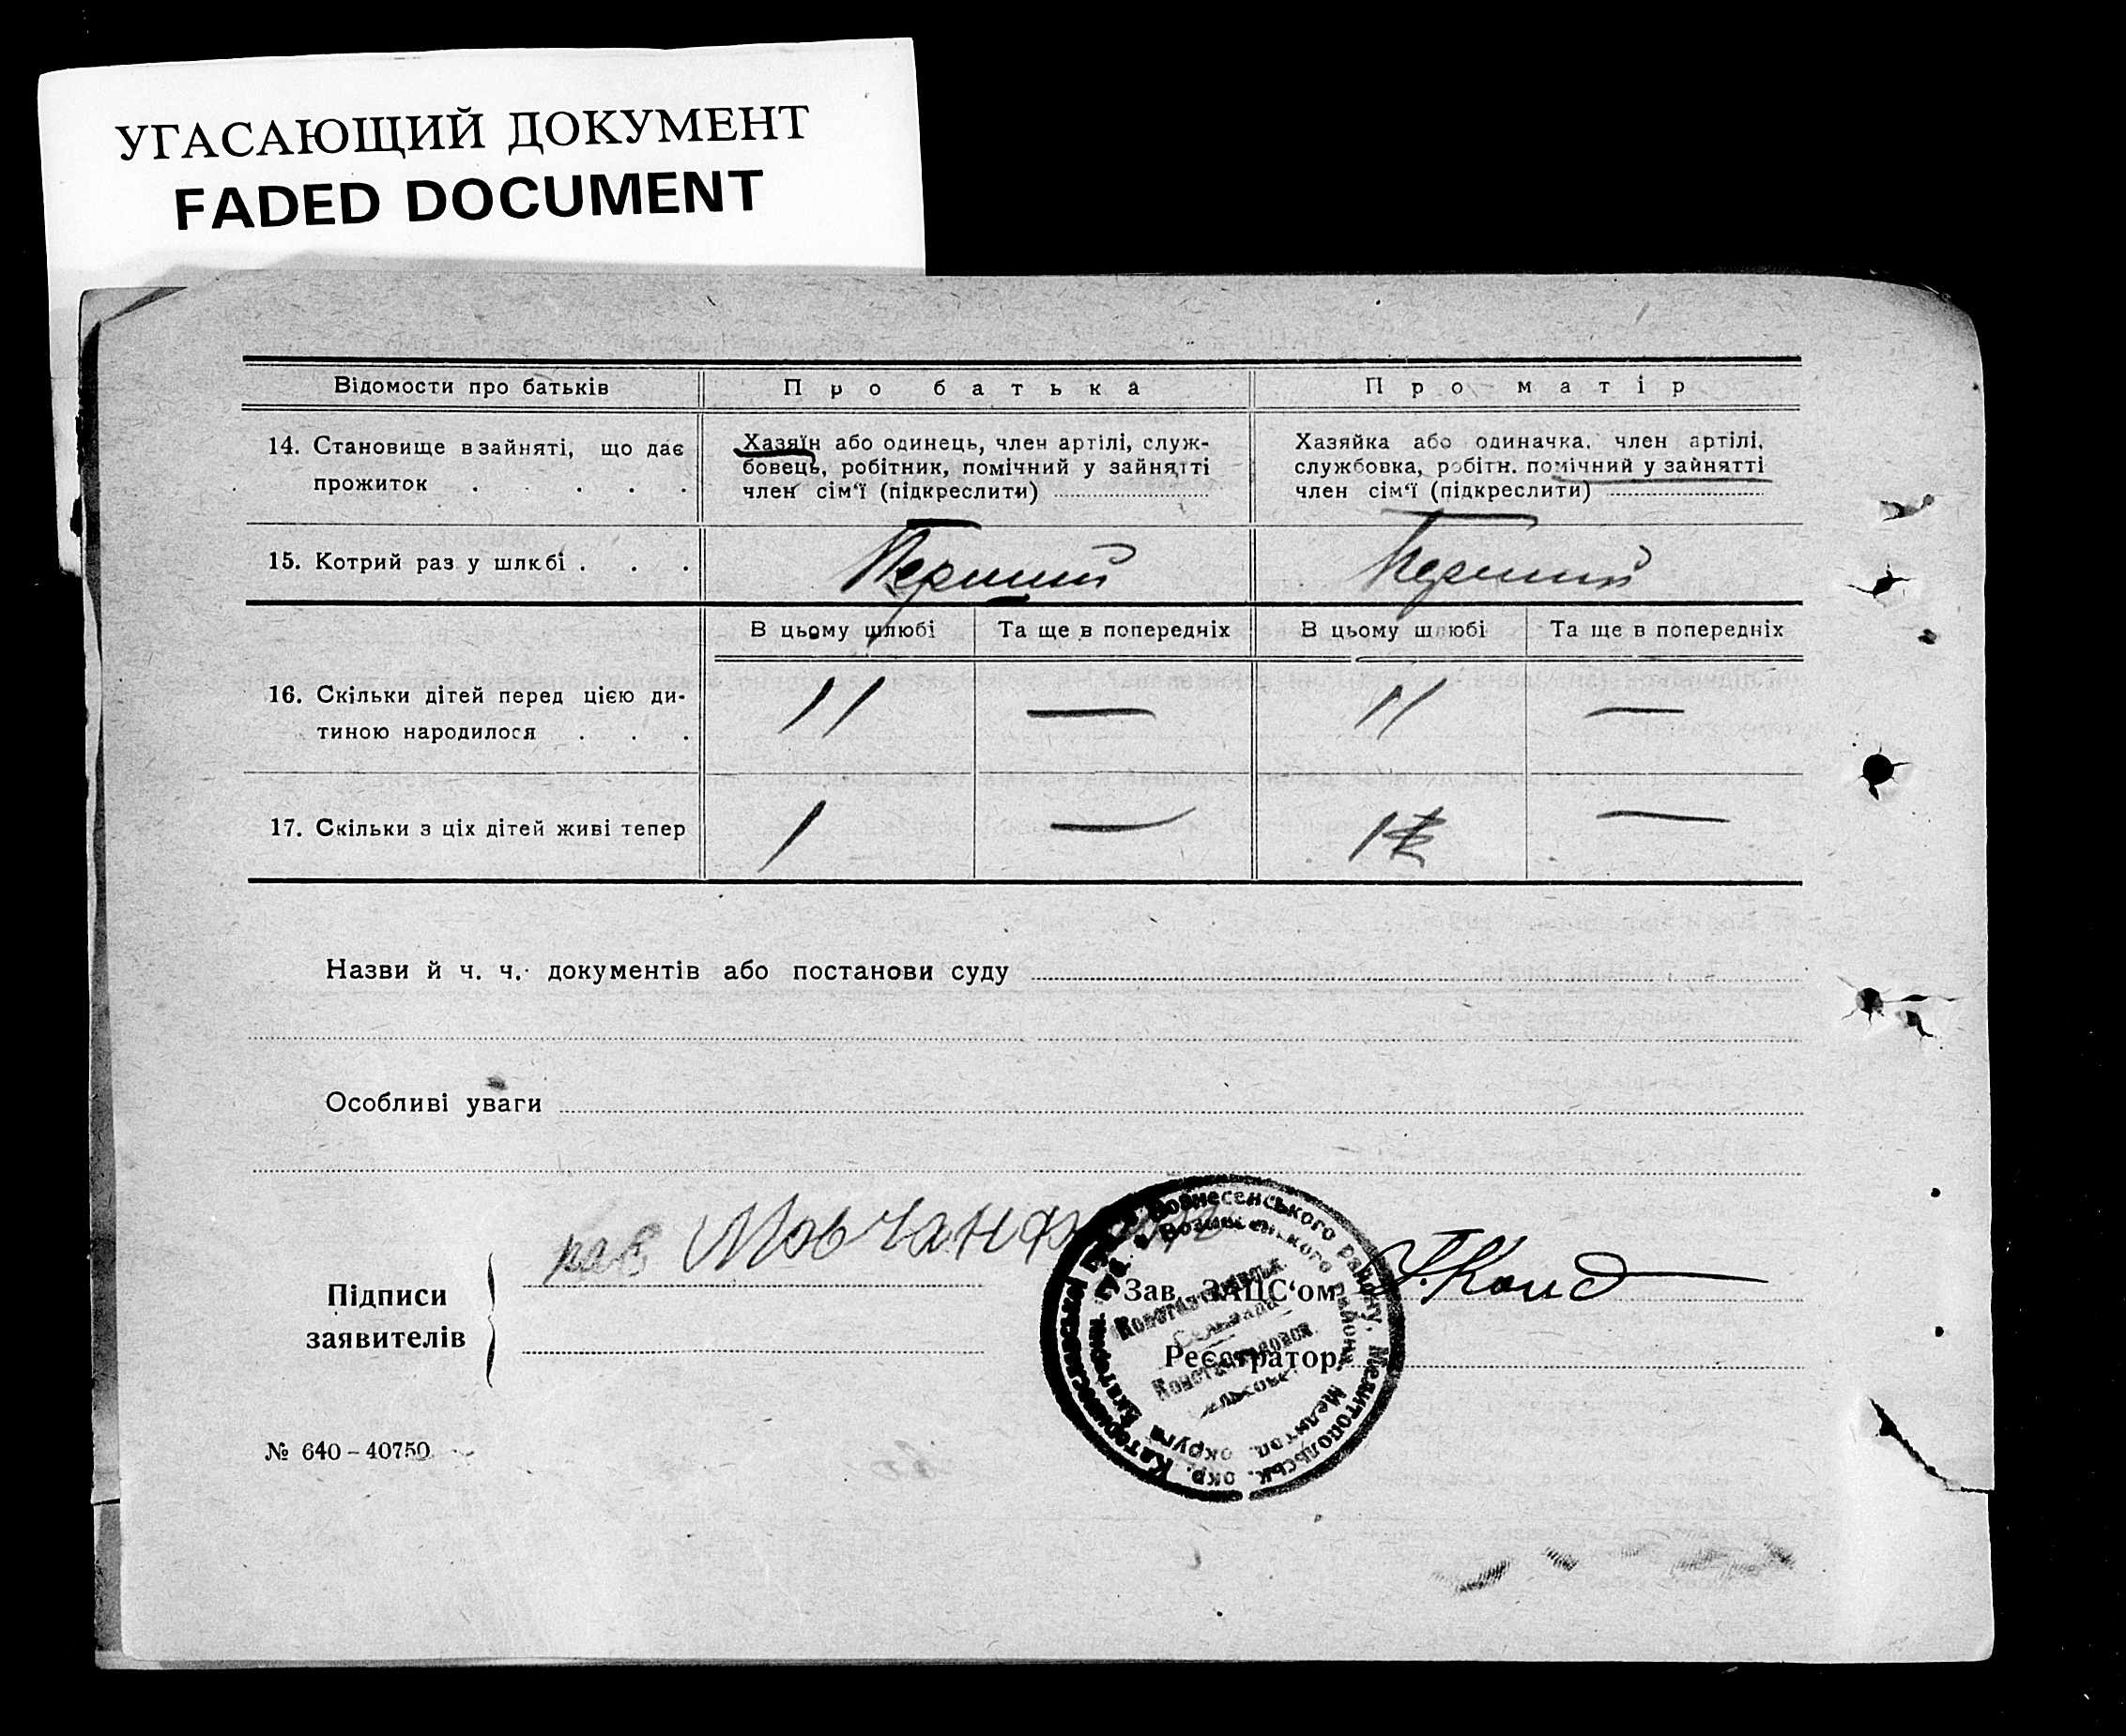 УГАСАЮЩИЙ ДОКУМЕНТ
FADED DOCUMENT
Відомости про батьків
Про батька
Про матір
14. Становище в зайняті, що дає
прожиток . . . . .
Хазяїн або одинець, член артілі, служ-
бовець, робітник, помічний у зайнятті
член сім'ї (підкреслити)
Хазяйка або одиначка, член артілі,
службовка, робітн. помічний у зайнятті
член сім'ї (підкреслити)
15. Котрий раз у шлюбі . . .
Перший
Перший
В цьому шлюбі
Та ще в попередніх
В цьому шлюбі
Та ще в попередніх
16. Скільки дітей перед цією ди-
тиною народилося . . .
11
—
11
—
17. Скільки з ціх дітей живі тепер
1
—
1
—
Назви й ч. ч. документів або постанови суду
Особливі уваги
Підписи
заявителів
Мовчан
Зав. ЗАЦС'ом
Реєстратор
Вознесенського району, Мелитопольськ. окр. Катеринославської
Вознесенського району Мелитоп. округи Екатерин.
№ 640–40750